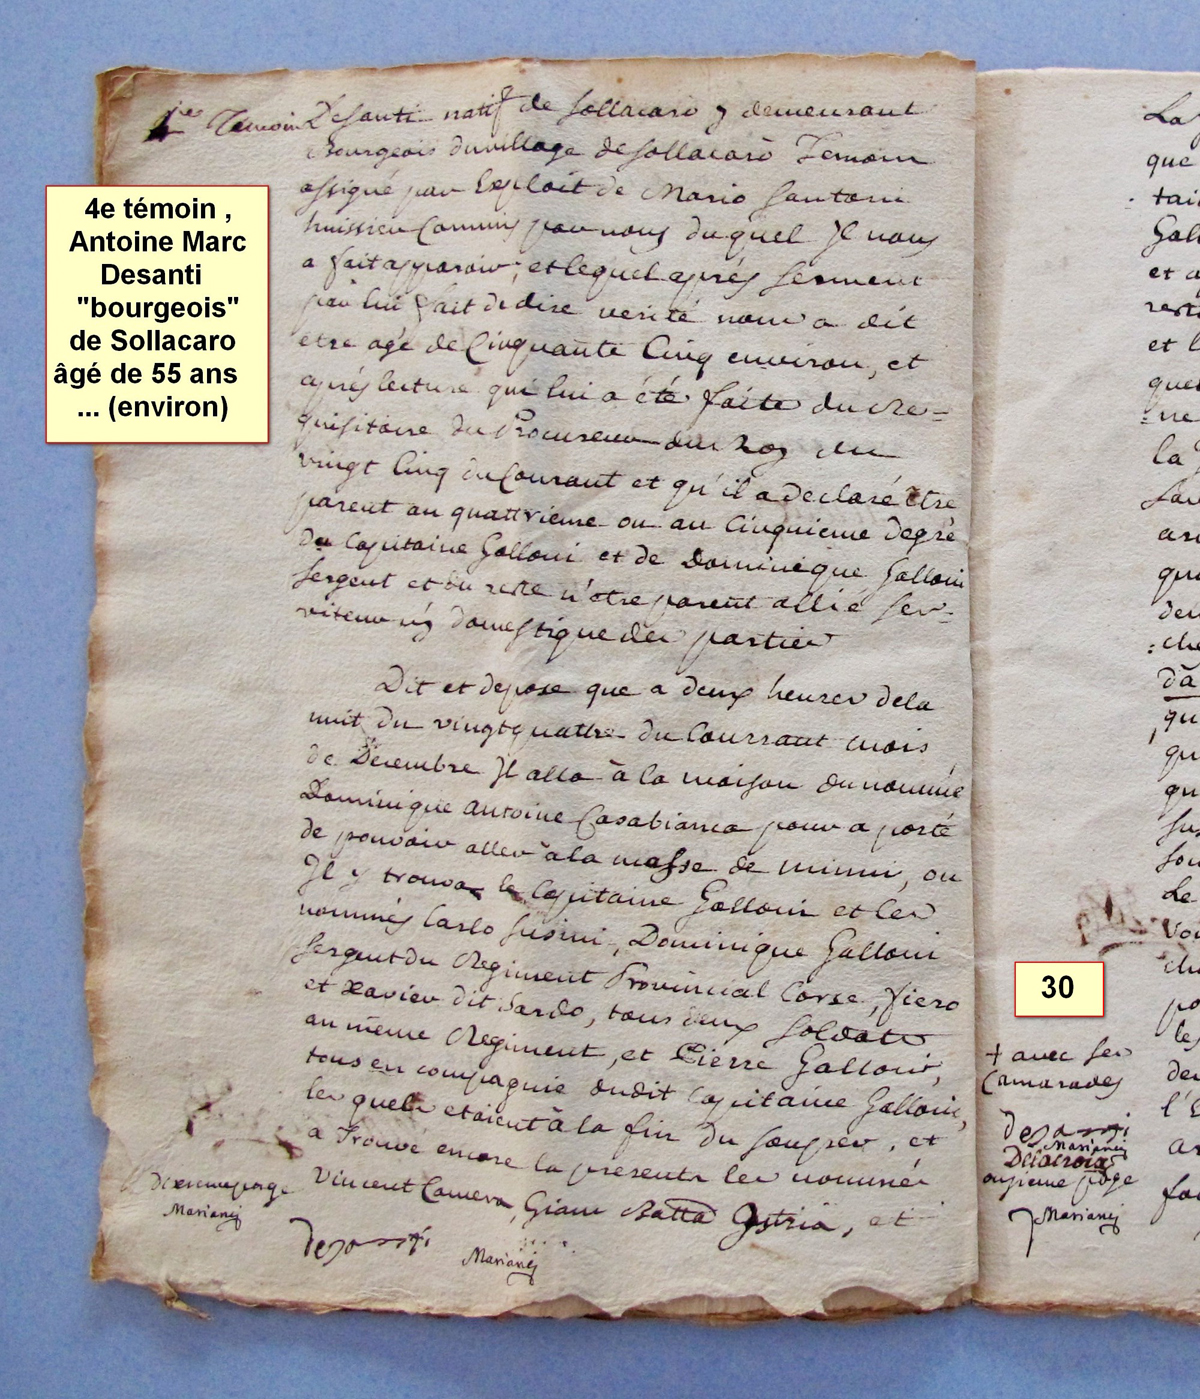 4e témoin ,
Antoine Marc
Desanti
"bourgeois"
de Sollacaro
âgé de 55 ans
... (environ)
4.ie Temoin
Desanti natif de Sollacaro y demeurant
Bourgeois du village de Sollacaro Temoin
assigné par Exploit de Mario Santoni
huissier Commis par nous duquel Il nous
a fait apparoir, et lequel après serment
par lui fait de dire verité nous a dit
etre agé de Cinquante Cinq environ, et
après lecture qui lui a été faite du Re=
quisitoire du Procureur du Roy du
vingt Cinq du Courant et qu'il a declaré être
parent au quattrieme ou au Cinquieme degré
du Capitaine Galloni et de Dominique Galloni
sergent et du reste n'etre parent allié ser=
viteur ny domestique des parties
Dit et depose que a deux heures dela
nuit du vingtquattre du Courrant mois
de Decembre Il alla à la maison du nommé
Dominique Antoine Casabianca pour a porté
de pouvoir aller à la masse de minui, ou
Il y trouva le Capitaine Galloni et les
nommés Carlo Susini, Dominique Galloni
sergent du Regiment Provincial Corse, fiero
et Xavier dit Sardo, tous deux soldats
au même Regiment, et Pierre Galloni,
tous en compagnie dudit Capitaine Galloni,
les quels etaient à la fin du souper, et
a trouvé encore la presents les nommés
Vincent Camera, Gian Batta Istria, et
desanti
Marianij
page
Marianij
30
+ avec ses
Camarades
desanti
Marianij
Delacroix
onzieme page
Marianij
La
que
Gal
et
et l
quel
ne
la
qu
dà
qu
qu
Le
les
l'E